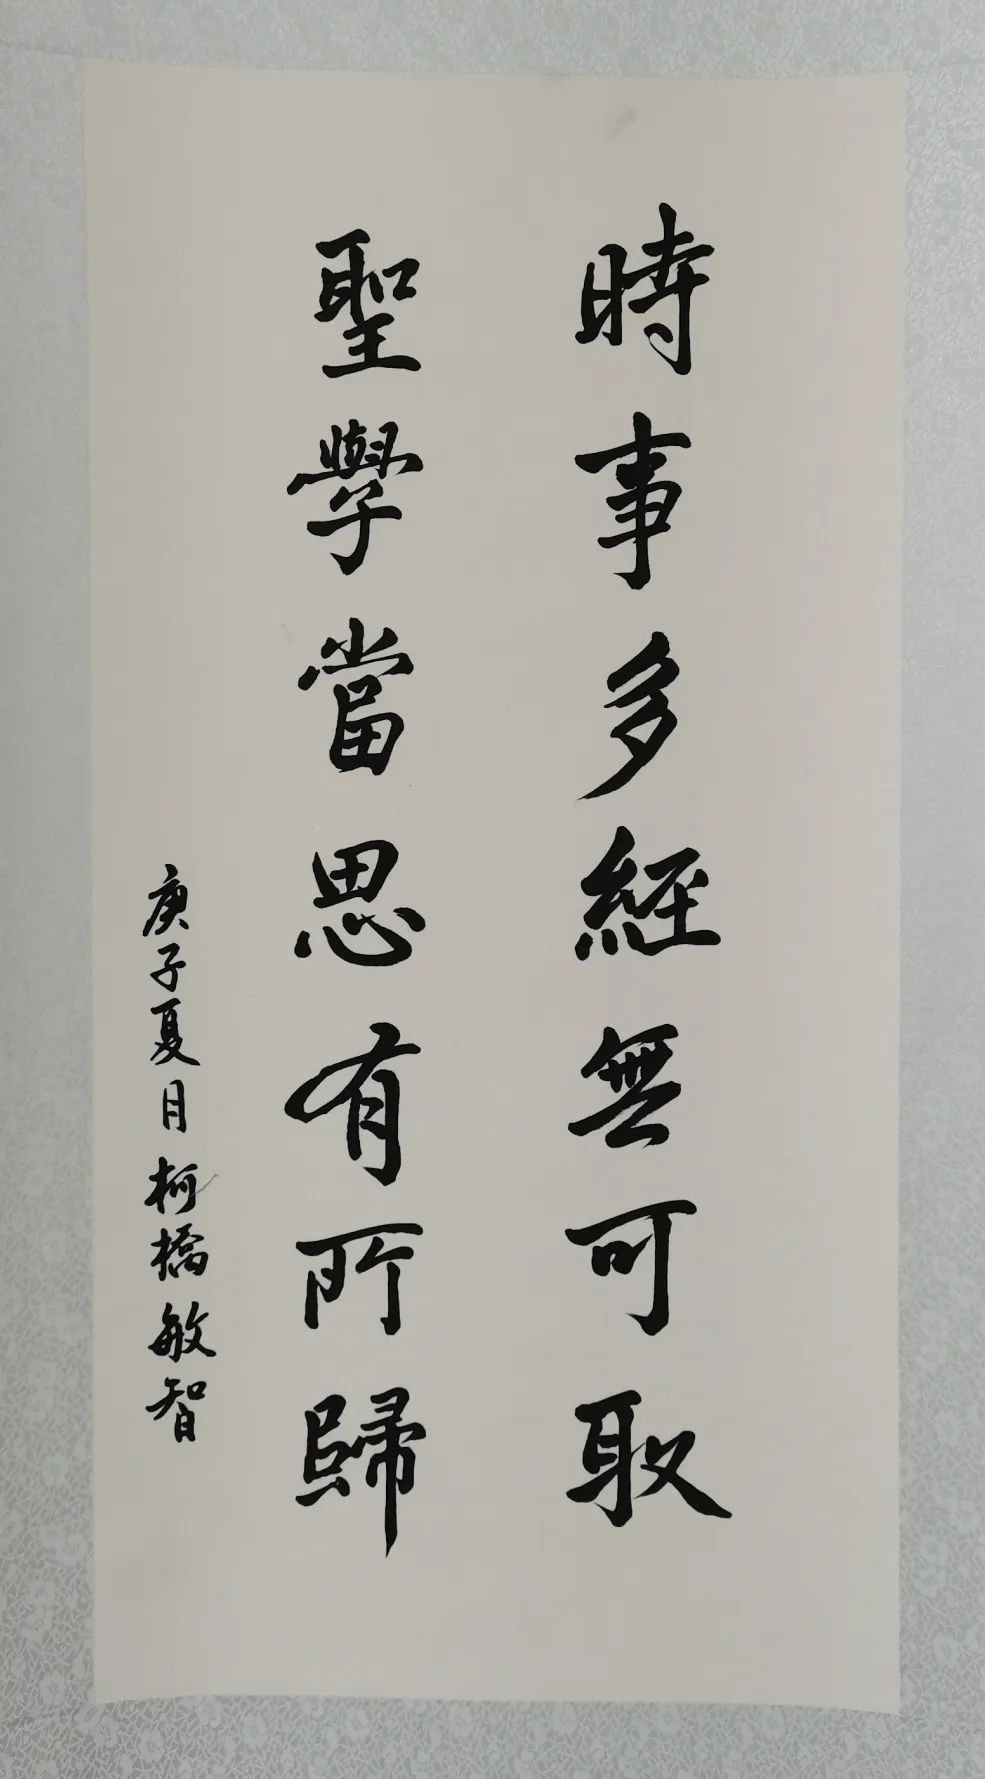 時事多經無可取
聖學當思有所歸
庚子夏月柯橋敏智